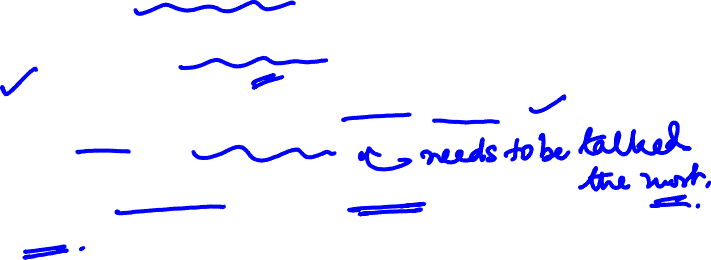 needs to be talked
the most.